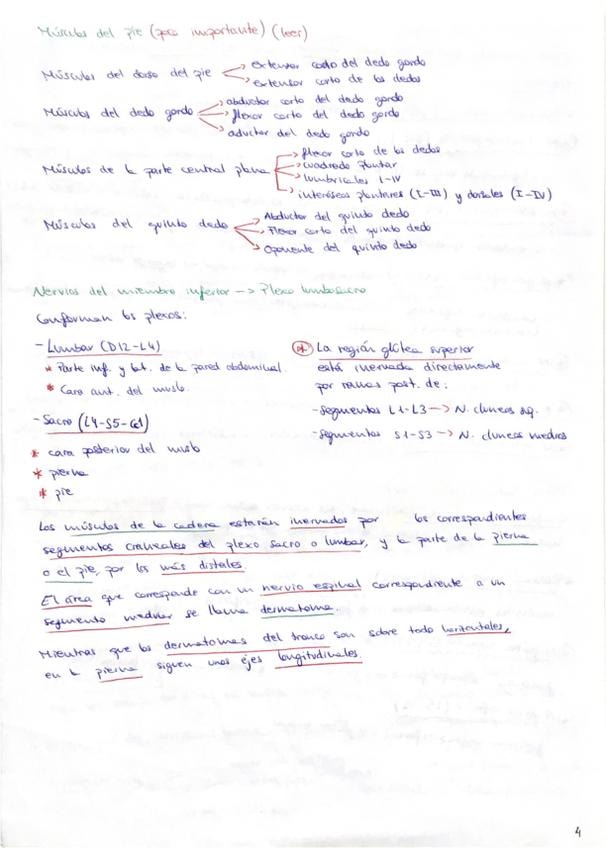 Músculos del pie (poco importante) (leer)
Músculos del dorso del pie → extensor corto del dedo gordo
→ extensor corto de los dedos
Músculos del dedo gordo → abductor corto del dedo gordo
→ flexor corto del dedo gordo
→ aductor del dedo gordo
Músculos de la parte central plana → flexor corto de los dedos
→ cuadrado plantar
→ lumbricales I-IV
→ interóseos plantares (I-III) y dorsales (I-IV)
Músculos del quinto dedo → Abductor del quinto dedo
→ Flexor corto del quinto dedo
→ Oponente del quinto dedo
Nervios del miembro inferior -> Plexo lumbosacro
Conforman los plexos:
- Lumbar (D12-L4)
* Parte inf. y lat. de la pared abdominal.
* Cara ant. del muslo.
- Sacro (L4-S5-Co1)
* cara posterior del muslo
* pierna
* pie
* La región glútea superior
está inervada directamente
por ramas post. de:
- segmentos L1-L3 -> N. cluneos sq.
- segmentos S1-S3 -> N. cluneos medios
Los músculos de la cadera estarán inervados por los correspondientes
segmentos craneales del plexo sacro o lumbar, y la parte de la pierna
o el pie, por los más distales.
El área que corresponde con un nervio espinal correspondiente a un
segmento medular se llama dermatoma.
Mientras que los dermatomas del tronco son sobre todo horizontales,
en la pierna siguen unos ejes longitudinales.
4